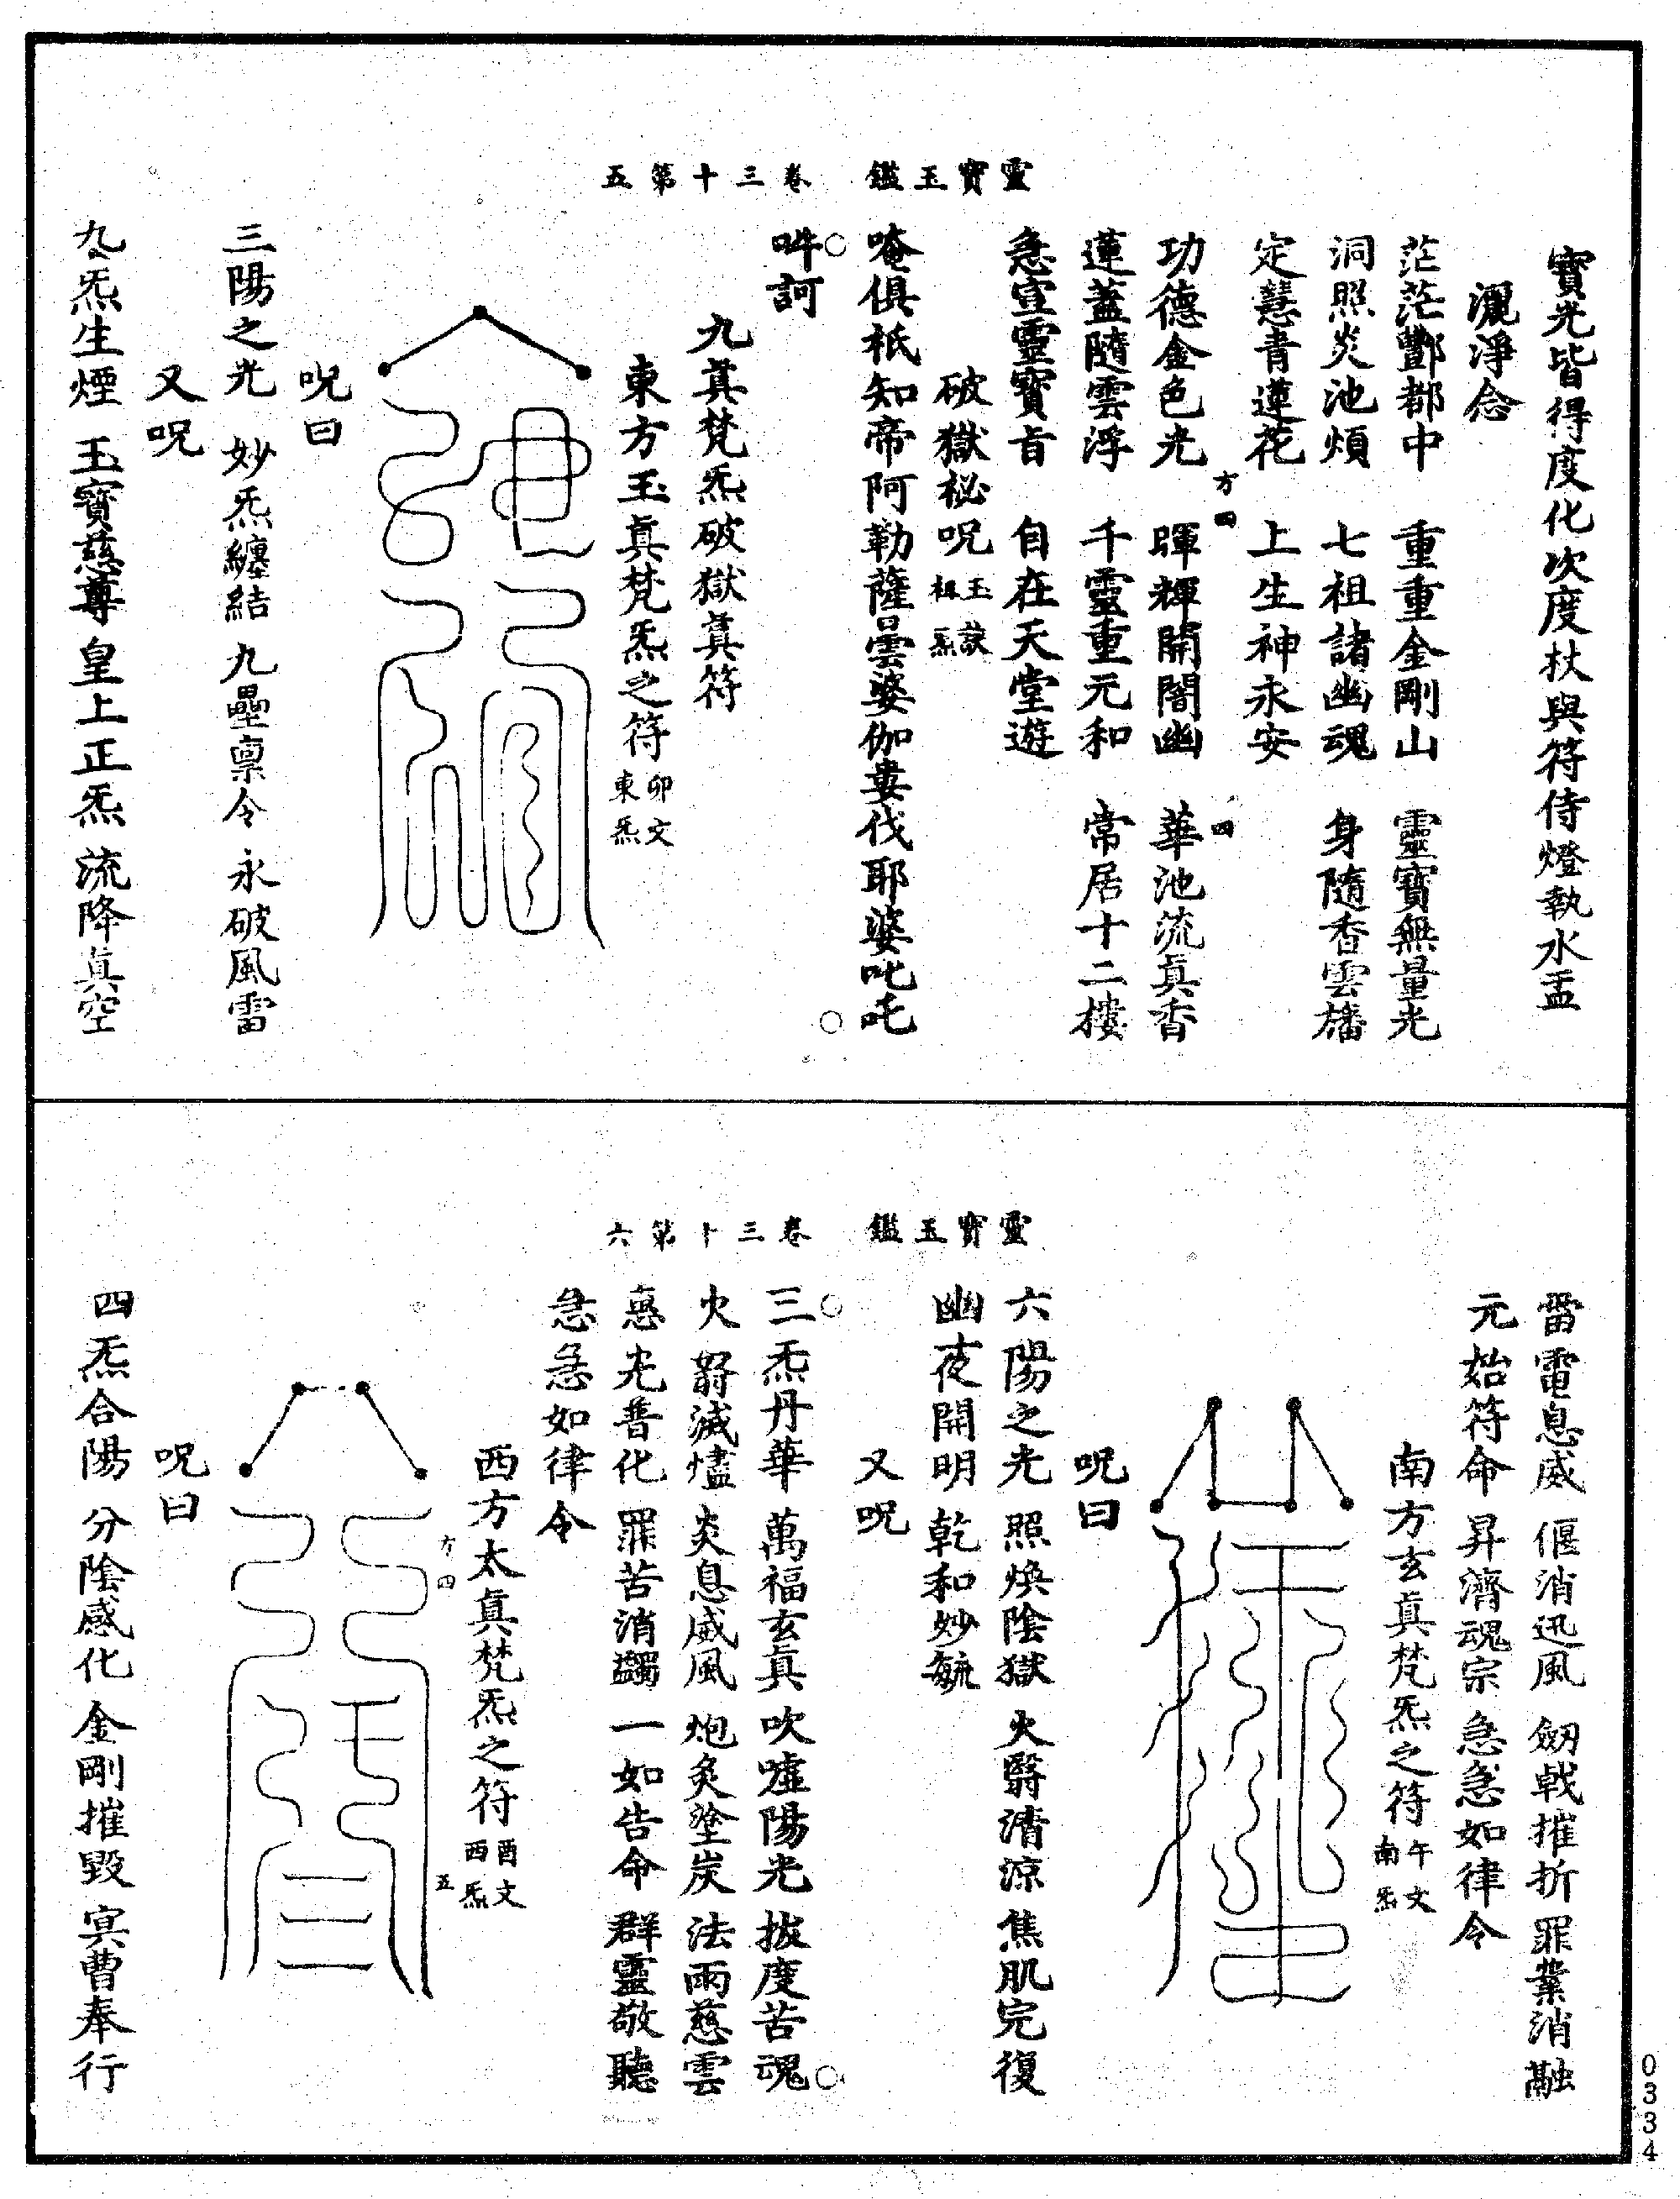 寶光皆得度化次度杖與符侍燈執水盂
灑淨念
茫茫酆都中　重重金剛山　靈寶無量光
洞照炎池煩　七祖諸幽魂　身隨香雲旛
定慧青蓮花　上生神永安
方四　四
功德金色光　暉輝開闇幽　華池流真香
蓮蓋隨雲浮　千靈重元和　常居十二樓
急宣靈寶旨　自在天堂遊
靈寶玉鑑　卷三十第五
破獄祕呪玉訣祖炁
唵俱祇知帝阿勒薩曇婆伽婁伐耶婆吒吒
吽訶
九真梵炁破獄真符
東方玉真梵炁之符卯文東炁
呪曰
三陽之光　妙炁纏結　九壘禀令　永破風雷
又呪
九炁生煙　玉寶慈尊　皇上正炁　流降真空
雷電息威　偃消迅風　劒戟摧折　罪業消融
元始符命　昇濟魂宗　急急如律令
南方玄真梵炁之符午文南炁
呪曰
六陽之光　照煥陰獄　火翳清涼　焦肌完復
幽夜開明　乾和妙毓
靈寶玉鑑　卷三十第六
又呪
三炁丹華　萬福玄真　吹噓陽光　披度苦魂
火翳滅燼　炎息威風　炮炙塗炭　法雨慈雲
惠光普化　罪苦消蠲　一如告命　群靈敬聽
急急如律令
西方太真梵炁之符酉文西炁
方四　五
呪曰
四炁合陽　分陰感化　金剛摧毀　冥曹奉行
0334